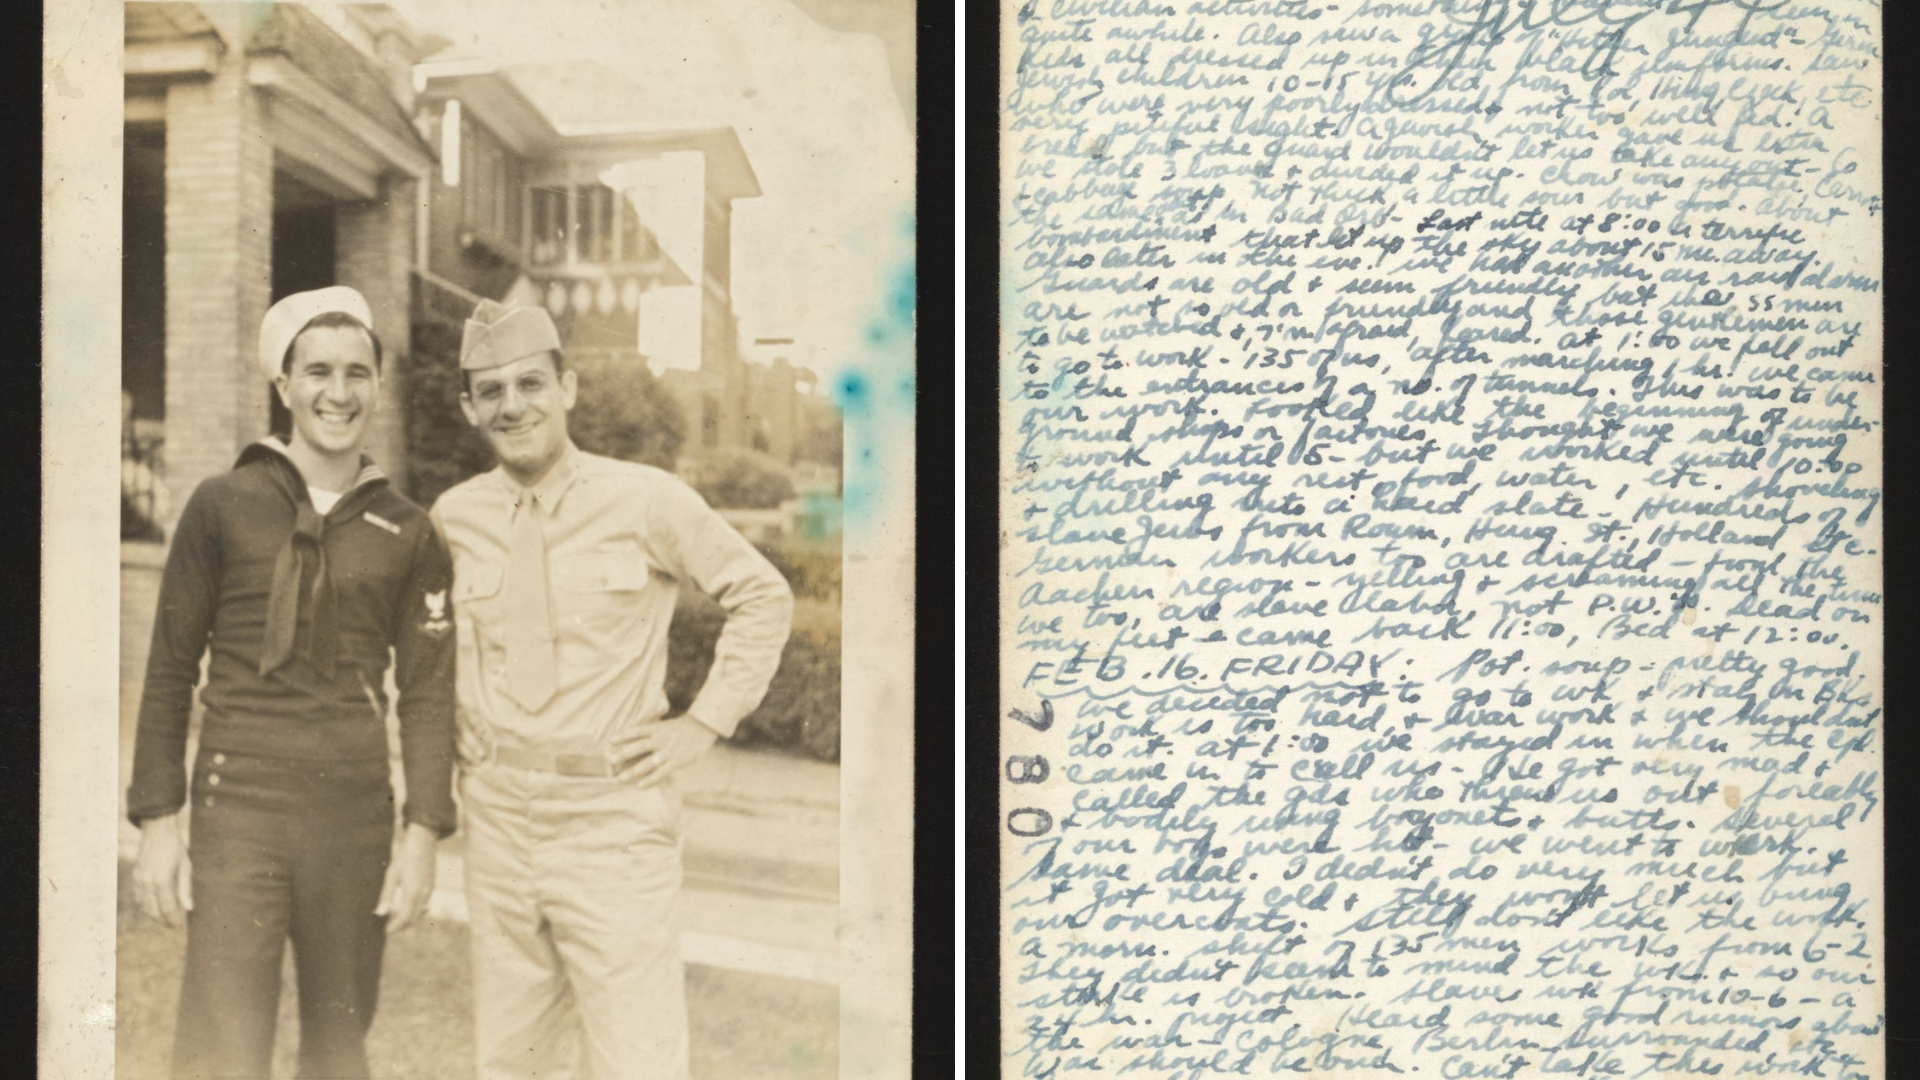 & civilian activities - something
quite awhile. Also saw a group of "Hitler Jugend" -
kids, all dressed up in their black uniforms. Saw
Jewish children 10-15 yrs. old from Pol, Hung, Czeck, etc
who were very poorly dressed & not too well fed. A
very pitiful sight. A Jewish worker gave us extra
bread but the guard wouldn't let us take any out - So
we stole 3 loaves & divided it up. Chow was potatoe
& cabbage soup not thick a little sour but good. About
the same as in Bad Orb - Last nite at 8:00 a terrific
bombardment that lit up the sky about 15 mi. away.
also later in the eve. we had another air raid alarm
Guards are old & seem friendly but the SS men
are not so old or friendly and those gentlemen are
to be watched &, I'm afraid, feared. At 1:00 we fell out
to go to work - 135 of us, after marching 1 hr. we came
to the entrances of a no. of tunnels. This was to be
our work. Looked like the beginning of under-
ground shops or factories. Thought we were going
to work until 5 - but we worked until 10:00
without any rest, food, water, etc. Shoveling
& drilling into a hard slate - Hundreds of
slave Jews from Roum, Hung. It., Holland Etc.
German workers too are drafted - from the
Aachen region - yelling & screaming all the time
we too, are slave labor, not P.W.'s. Dead on
my feet & came back 11:00, Bed at 12:00.
FEB. 16. FRIDAY: Pot. soup - pretty good.
We decided not to go to wk & stay in Bks
Work is too hard, & war work & we shouldn't
do it. At 1:00 we stayed in when the Cpl.
came in to call us - He got very mad &
called the gds who threw us out forceably
& bodily using bayonets & butts. Several
of our boys were hit - we went to work.
Same deal. I didn't do very much but
it got very cold & they won't let us bring
our overcoats. Still don't like the work.
A morn. shift of 135 men works from 6-2
They didn't seem to mind the wk. & so our
strike is broken. Slaves wk from 10-6 - a
24 hr. project. Heard some good rumors about
the war - Cologne, Berlin surrounded etc
War should be over. Can't take this work to
780